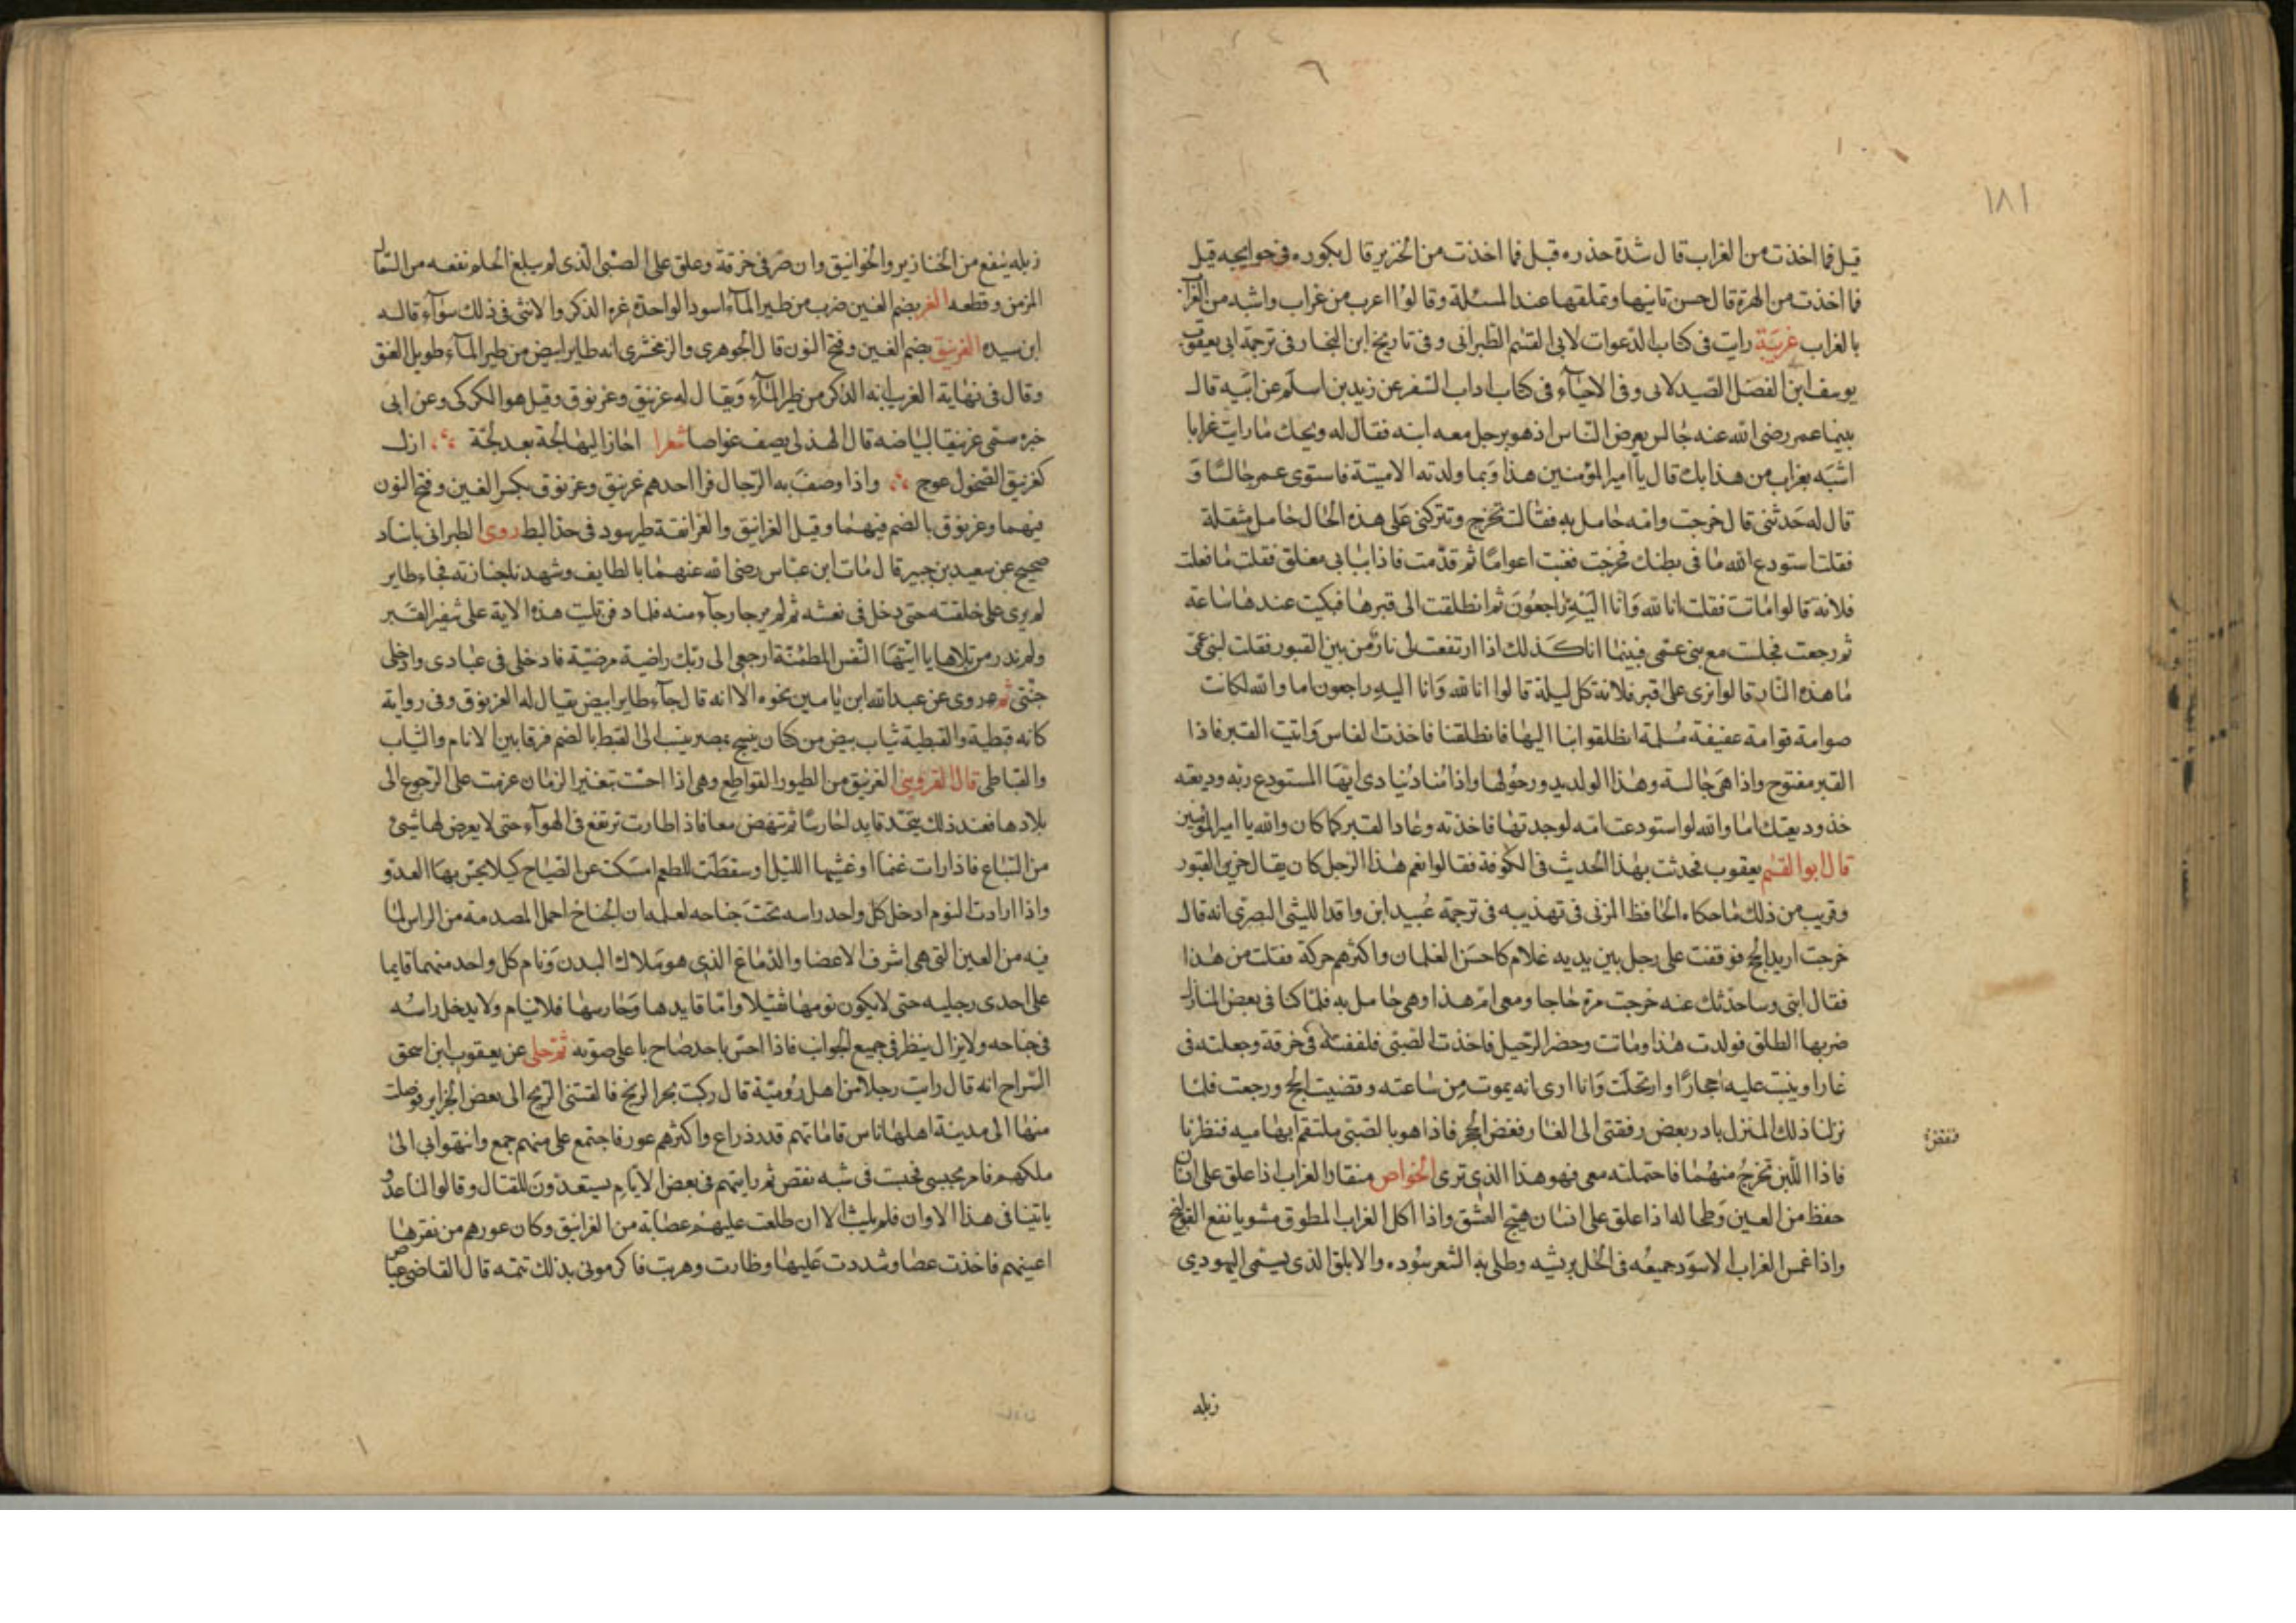 ١٨١
قيل فما اخذت من الغراب قال شدة حذره قيل فما اخذت من الخنزير قال بكوره في حوايجه قيل
فما اخذت من الهرة قال حسن تانيها وتملقها عند المسئلة وقالوا اغرب من غراب واشبه من الغراب
بالغراب غريبة رايت في كتاب الدعوات لابي القسم الطبراني وفي تاريخ ابن النجار في ترجمة ابي يعقوب
يوسف ابن الفضل الصيدلاني وفي الاحياء في كتاب اداب السفر عن زيد بن اسلم عن ابيه قال
بينما عمر رضى الله عنه جالس يعرض الناس اذ هو برجل معه ابنه فقال له ويحك ما رايت غرابا
اشبه بغراب من هذا بك قال يا امير المؤمنين هذا وبما ولدته الا ميتة فاستوى عمر جالسا و
قال له حدثني قال خرجت وامه حامل به فقالت تخرج وتتركني على هذه الحال حامل مثقلة
فقلت استودع الله ما في بطنك فخرجت فغبت اعواما ثم قدمت فاذا بابي مغلق فقلت ما فعلت
فلانة قالوا ماتت فقلت انا لله وانا اليه راجعون ثم انطلقت الى قبرها فبكيت عندها ساعة
ثم رجعت فجلست مع بني عمي فبينما انا كذلك اذا ارتفعت لي نار من بين القبور فقلت لبني عمي
ما هذه النار قالوا نرى على قبر فلانة كل ليلة قالوا انا لله وانا اليه راجعون اما والله لكانت
صوامة قوامة عفيفة مسلمة انطلقوا بنا اليها فانطلقنا فاخذت الفاس واتيت القبر فاذا
القبر مفتوح واذا هي جالسة وهذا الولد يدور حولها واذا مناد ينادي ايها المستودع ربه وديعته
خذ وديعتك اما والله لو استودعت امه لوجدتها فاخذته وعاد القبر كما كان والله يا امير المؤمنين
قال ابو القسم يعقوب فحدثت بهذا الحديث في الكوفة فقالوا نعم هذا الرجل كان يقال خزين القبور
وقريب من ذلك ما حكاه الحافظ المزني في تهذيبه في ترجمة عبيد ابن واقد الليثي البصري انه قال
خرجت اريد الحج فوقفت على رجل بين يديه غلام كاحسن الغلمان واكثرهم حركة فقلت من هذا
فقال ابني وساحدثك عنه خرجت مرة حاجا ومعي ام هذا وهي حامل به فلما كنا في بعض المنازل
ضربها الطلق فولدت هذا وماتت وحضر الرحيل فاخذت الصبي فلففته في خرقة وجعلته في
غار او بنيت عليه احجارا وارتحلت وانا ارى انه يموت من ساعته وقضيت الحج ورجعت فلما
نزلنا ذلك المنزل بادر بعض رفقتي الى الغار فنفض الحجر فاذا هو بالصبي ملتقم ابهاميه فنظرنا
فاذا اللبن تخرج منهما فاحتملته معي فهو هذا الذي ترى الخواص منقار الغراب اذا علق على انسان
حفظ من العين وطحاله اذا علق على انسان هيج العشق واذا اكل الغراب المطوق مشويا نفع القولنج
واذا غمس الغراب الاسود جميعه في الخل بريشه وطلي به الشعر سوده والابلق الذي يسمى اليهودي
زبله
زبله ينفع من الخنازير والخوانيق وان صر في خرقة وعلق على الصبي الذي لم يبلغ الحلم نفعه من السعال
المزمن وقطعه الغر بضم الغين ضرب من طير الماء اسود الواحدة غره الذكر والانثى في ذلك سواء قاله
ابن سيده الغرنيق بضم الغين وفتح النون قال الجوهري والزمخشري انه طاير ابيض من طير الماء طويل العنق
وقال في نهاية الغريب انه الذكر من طير الماء ويقال له غرنيق وغرنوق وقيل هو الكركي وعن ابي
خيره سمي غرنيقا لبياضه قال الهذلي يصف غواصا شعرا اجاز اليها لجة بعد لجة ازل
كغرنيق الضحول عوج واذا وصف به الرجال قرا احدهم غرنيق وغرنوق بكسر الغين وفتح النون
فيهما وغرنوق بالضم فيهما وقيل الغرانيق والغرانقة طير سود في حد البط روى الطبراني باسناد
صحيح عن سعيد بن جبير قال مات ابن عباس رضى الله عنهما بالطايف وشهدنا جنازته فجاء طاير
لم يرى على خلقته حتى دخل في نعشه ثم لم ير خارجا منه فلما دفن تليت هذه الاية على شفير القبر
ولم ندر من تلاها يا ايتها النفس المطمئنة ارجعي الى ربك راضية مرضية فادخلي في عبادي وادخلي
جنتي ثم روى عن عبد الله ابن يامين نحوه الا انه قال جاء طاير ابيض يقال له الغرنوق وفي رواية
كانه قبطية والقبطية ثياب بيض من كتان ينسج بمصر ينسب الى القبط بالضم فرقا بين الانام والثياب
والقباطى قال القزويني الغرنيق من الطيور القواطع وهي اذا احست بتغير الزمان عزمت على الرجوع الى
بلادها فعند ذلك يتخذ قايد احارسا ثم تنهض معا فاذا طارت ترتفع في الهواء حتى لا يعرض لها شيئ
من السباع فاذا رات غنما او غشيها الليل او سقطت للطعم امسكت عن الصياح كيلا يحس بها العدو
واذا ارادت النوم ادخل كل واحد راسه تحت جناحه لعلمه ان الجناح احمل المصدمة من الراس لما
فيه من العين التي هي اشرف الاعضا والدماغ الذي هو ملاك البدن ونام كل واحد منهما قايما
على احدى رجليه حتى لا يكون نومها ثقيلا واما قايدها وحارسها فلا ينام ولا يدخل راسه
في جناحه ولا يزال ينظر في جميع الجوانب فاذا احس باحد صاح باعلى صوته ثم حكى عن يعقوب ابن اسحق
السراج انه قال رايت رجلا من اهل رومية قال ركبت بحر الزنج فالقتني الريح الى بعض الجزاير فوصلت
منها الى مدينة اهلها اناس قاماتهم قدر ذراع واكثرهم عور فاجتمع على منهم جمع وانتهوا بي الى
ملكهم فامر بحبسي فحبست في شبه نقص ثم رايتهم في بعض الايام يستعدون للقتال وقالوا لنا عدو
ياتينا في هذا الاوان فلم يلبث الا ان طلعت عليهم عصابة من الغرانيق وكان عورهم من نقرها
اعينهم فاخذت عصا وشددت عليها وطارت وهربت فاكرموني بذلك تتمه قال القاضي عياض